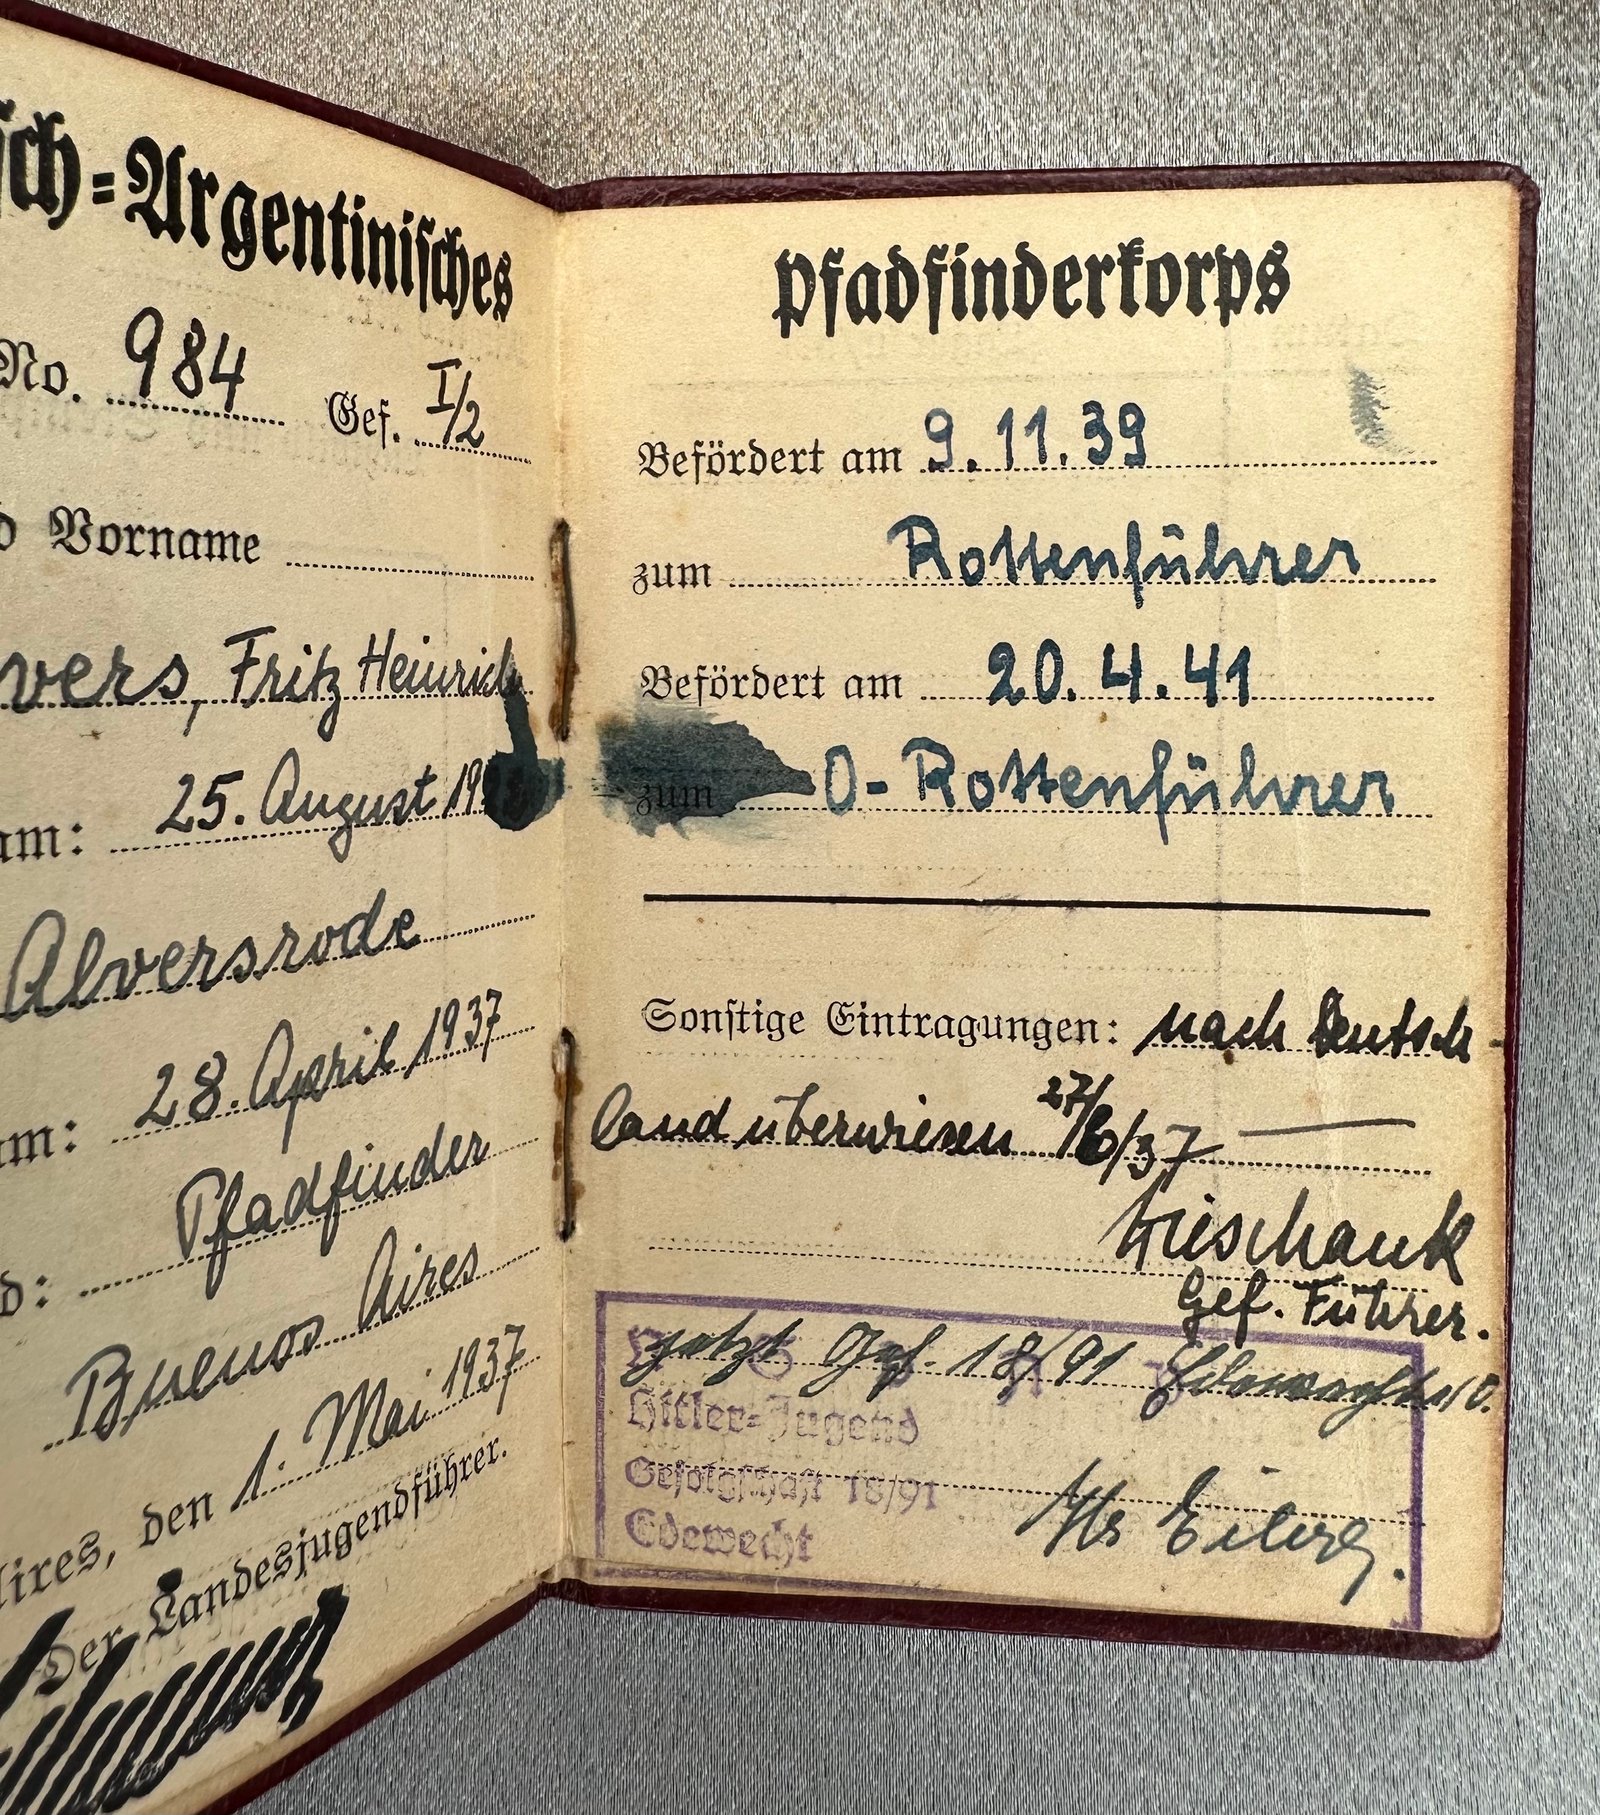 sch=Argentinisches
No. 984 Gef. I/2
d Vorname
vers, Fritz Heinrich
am: 25. August 19
Alversrode
am: 28. April 1937
d: Pfadfinder
Buenos Aires
Aires, den 1. Mai 1937
Der Landesjugendführer.
Pfadfinderkorps
Befördert am 9.11.39
zum Rottenführer
Befördert am 20.4.41
zum O-Rottenführer
Sonstige Eintragungen: nach Deutsch
land überwiesen 27/6/37
Gef. Führer.
jetzt Gef. 18/91
Hitler=Jugend
Gefolgschaft 18/91
Edewecht